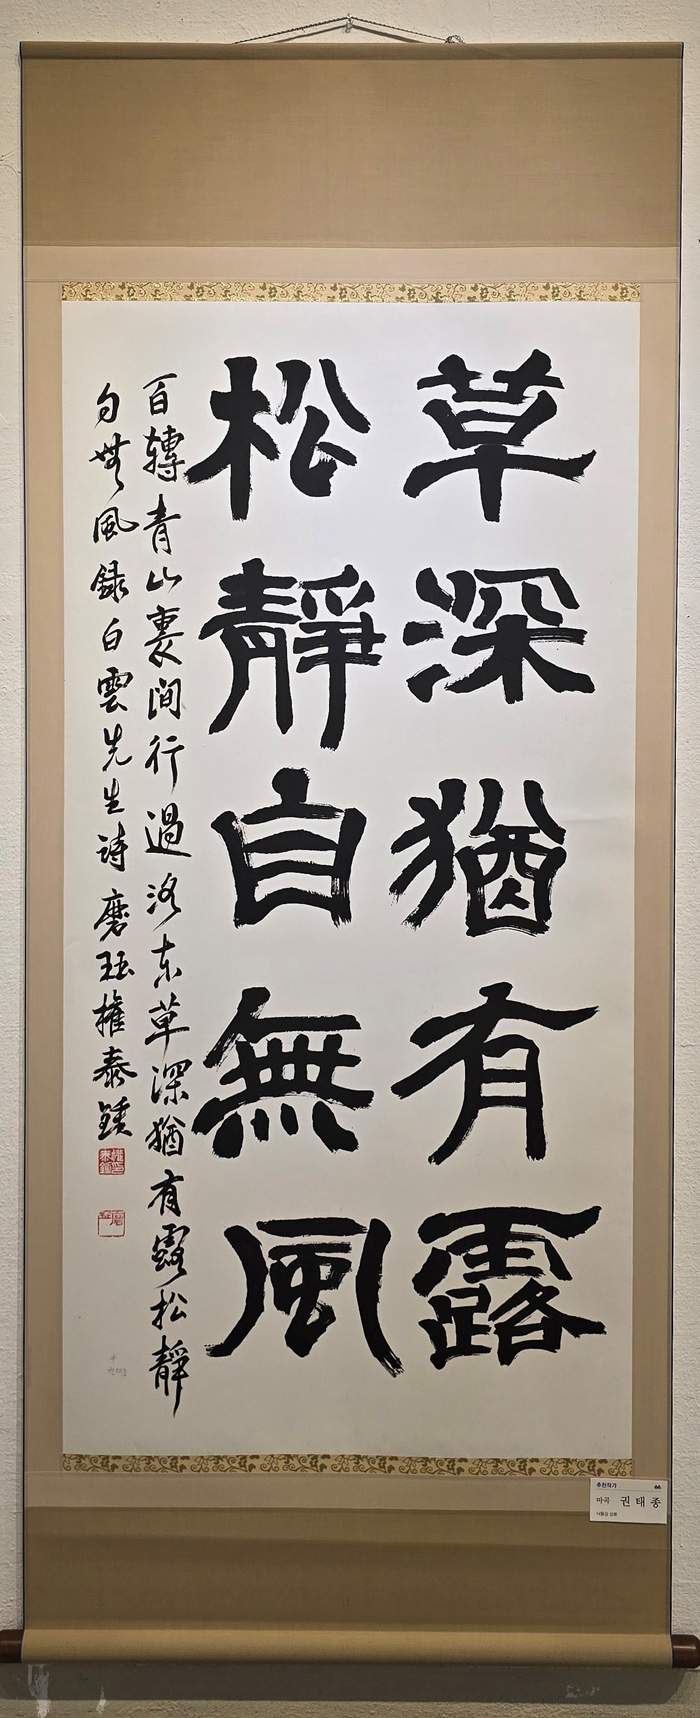 草深猶有露
松靜自無風
百轉青山裏閒行過洛東草深猶有露松靜
自無風錄白雲先生詩 磨珏權泰鍾
추천작가 66
마곡 권태종
낙동강 상류